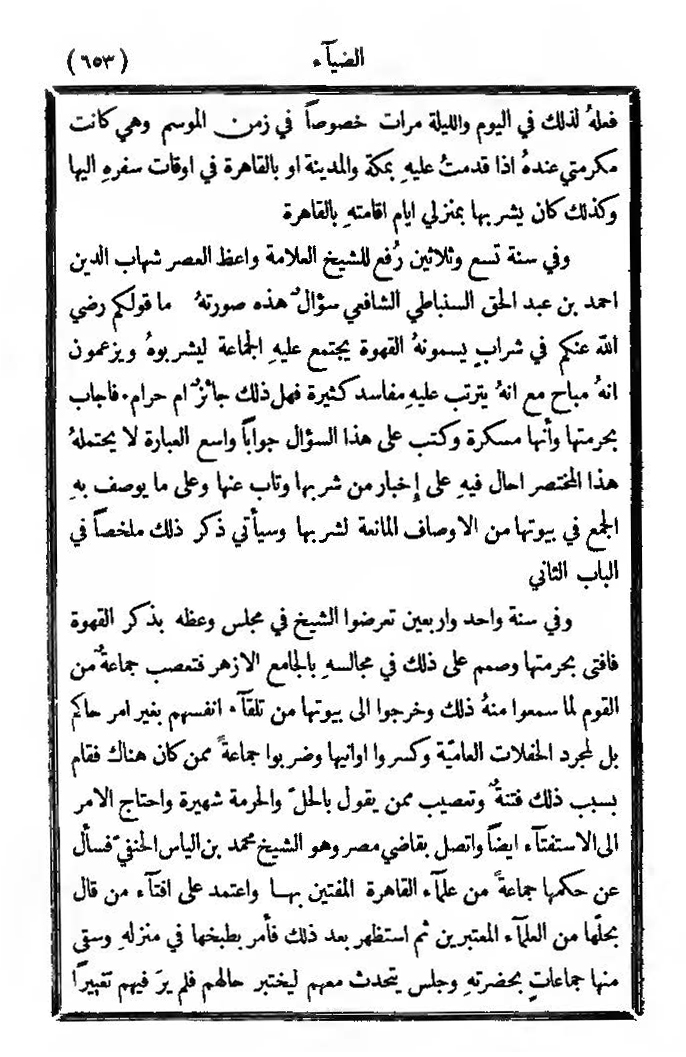 الضيآء
(٦٥٣)
فعلهُ لذلك في اليوم والليلة مرات خصوصاً في زمن الموسم وهي كانت
مكرمتي عندهُ اذا قدمتُ عليهِ بمكة والمدينة او بالقاهرة في اوقات سفرهِ اليها
وكذلك كان يشربها بمنزلي ايام اقامتهِ بالقاهرة
وفي سنة تسع وثلاثين رُفع للشيخ العلامة واعظ العصر شهاب الدين
احمد بن عبد الحق السنباطي الشافعي سؤالٌ هذه صورتهُ ما قولكم رضي
الله عنكم في شرابٍ يسمونهُ القهوة يجتمع عليهِ الجماعة ليشربوهُ ويزعمون
انهُ مباح مع انهُ يترتب عليهِ مفاسد كثيرة فهل ذلك جائزٌ ام حرام ٠ فاجاب
بحرمتها وأنها مسكرة وكتب على هذا السؤال جواباً واسع العبارة لا يحتملهُ
هذا المختصر احال فيهِ على إخبار من شربها وتاب عنها وعلى ما يوصف بهِ
الجمع في بيوتها من الاوصاف المانعة لشربها وسيأتي ذكر ذلك ملخصاً في
الباب الثاني
وفي سنة واحد واربعين تعرضوا الشيخ في مجلس وعظه بذكر القهوة
فافتى بحرمتها وصمم على ذلك في مجالسهِ بالجامع الازهر فتعصب جماعةٌ من
القوم لما سمعوا منهُ ذلك وخرجوا الى بيوتها من تلقآء انفسهم بغير امر حاكم
بل لمجرد الحفلات العاميّة وكسروا اوانيها وضربوا جماعةً ممن كان هناك فقام
بسبب ذلك فتنةٌ وتعصيب ممن يقول بالحلّ والحرمة شهيرة واحتاج الامر
الى الاستفتآء ايضاً واتصل بقاضي مصر وهو الشيخ محمد بن الياس الحنفيّ فسأل
عن حكمها جماعةً من علمآء القاهرة المفتين بها واعتمد على افتآء من قال
بحلّها من العلمآء المعتبرين ثم استظهر بعد ذلك فأمر بطبخها في منزلهِ وسقى
منها جماعاتٍ بحضرتهِ وجلس يتحدث معهم ليختبر حالهم فلم يرَ فيهم تغييراً